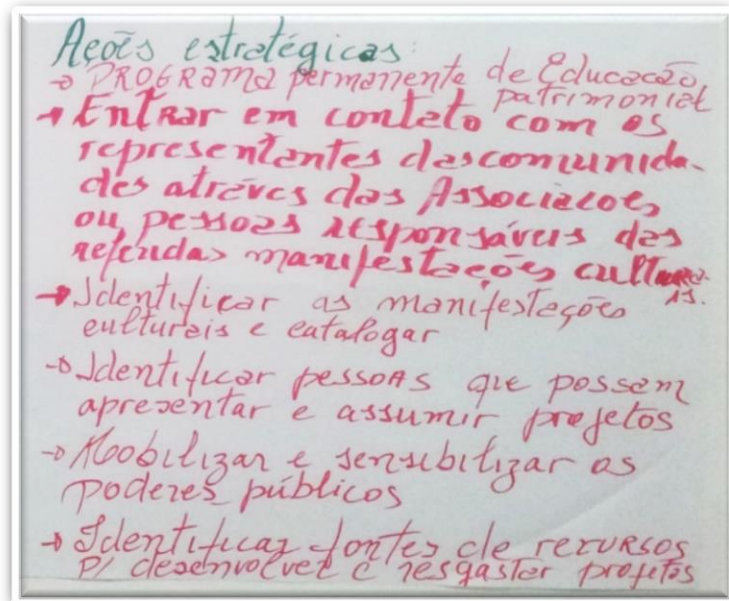 Ações estratégicas:
→ PROGRAMA permanente de Educação
patrimonial
→ Entrar em contato com os
representantes das comunida-
des atráves das Associacoes
ou pessoas responsáveis das
referidas manifestações cultura
is.
→ Identificar as manifestações
culturais e catalogar
→ Identificar pessoas que possam
apresentar e assumir projetos
→ Mobilizar e sensibilizar os
poderes públicos
→ Identificar fontes de recursos
p/ desenvolver e resgastar projetos